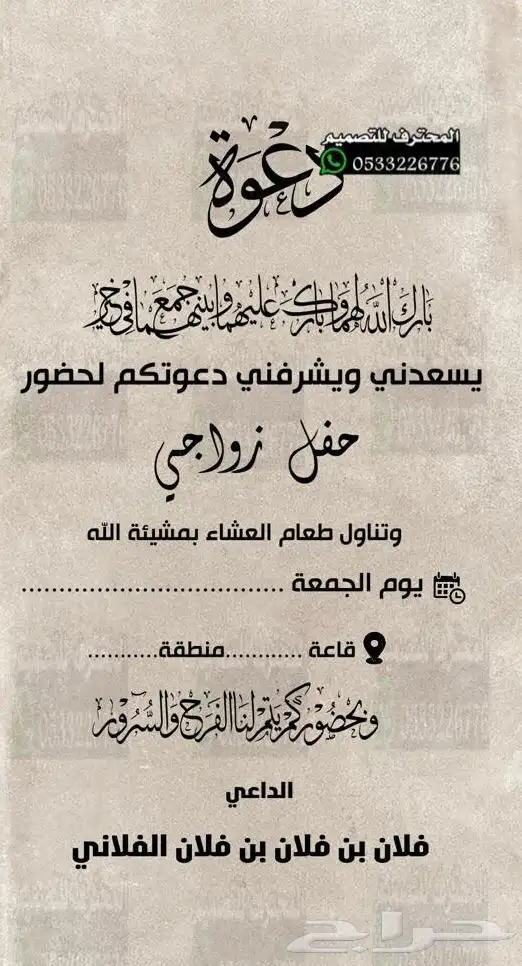 المحترف للتصميم
0533226776
دعوة
بارك الله لهما وبارك عليهما وجمع بينهما في خير
يسعدني ويشرفني دعوتكم لحضور
حفل زواجي
وتناول طعام العشاء بمشيئة الله
يوم الجمعة ...................................
قاعة ............منطقة...........
وبحضوركم يتم لنا الفرح والسرور
الداعي
فلان بن فلان بن فلان الفلاني
حراج